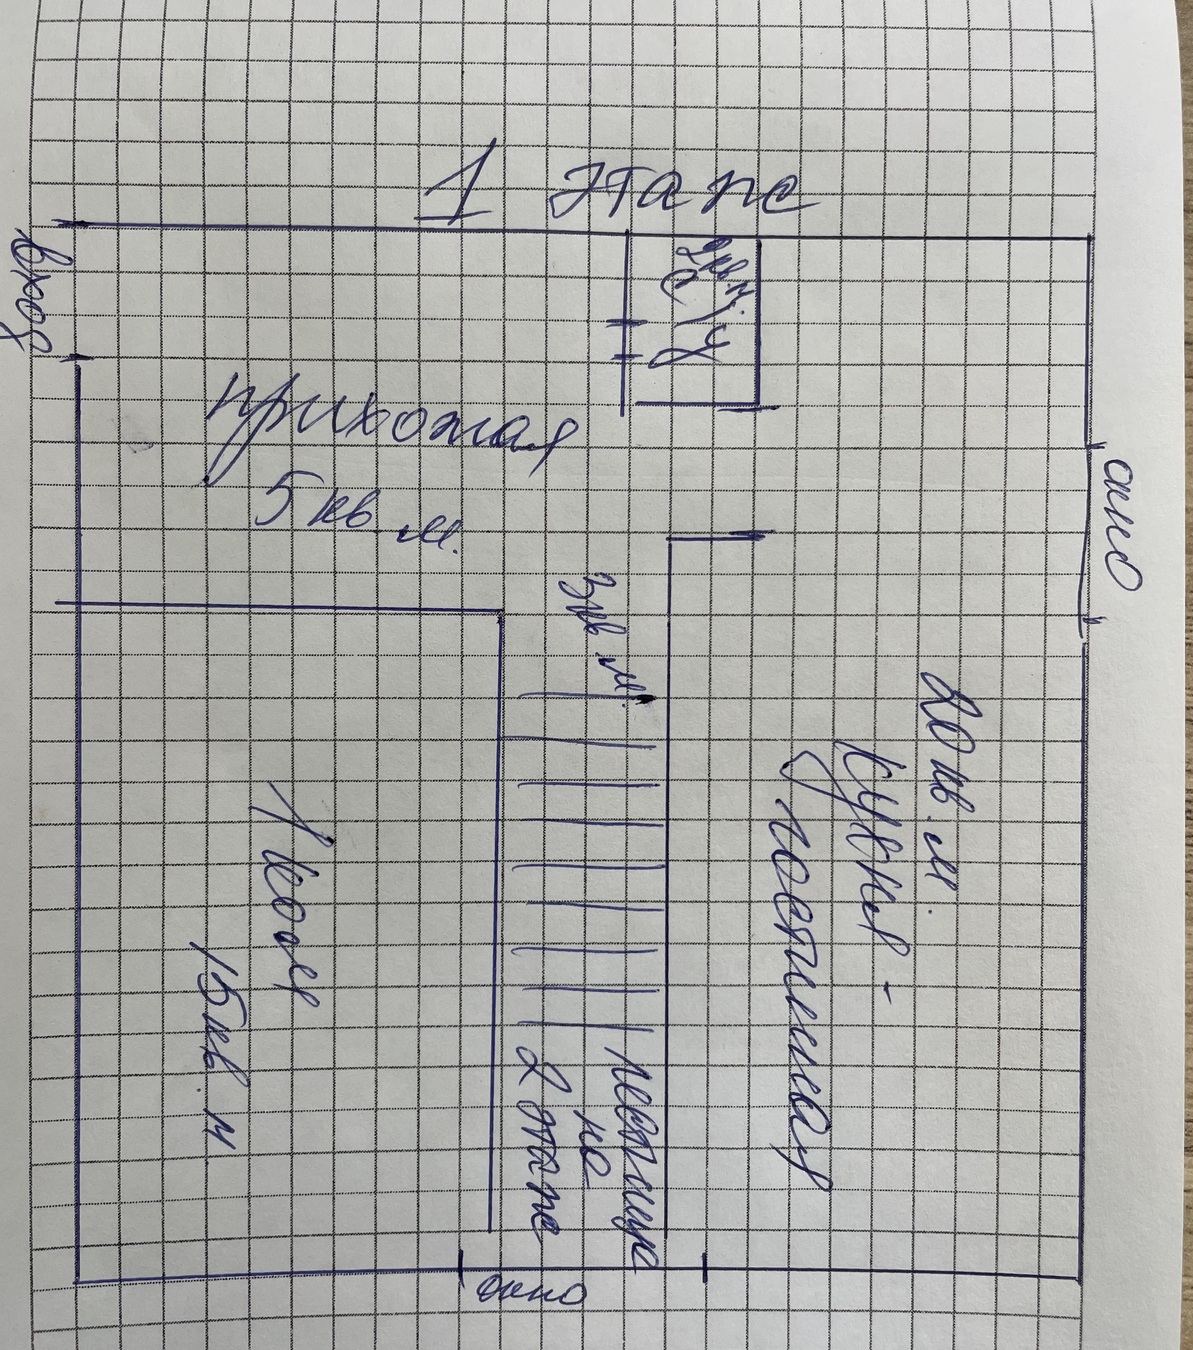 1 этаж
вход
2 кв м.
с/у
прихожая
5 кв м.
окно
3 кв м.
20 кв. м.
кухня -
гостиная
1 ком
15 кв. м
лестница
на
2 этаж
окно